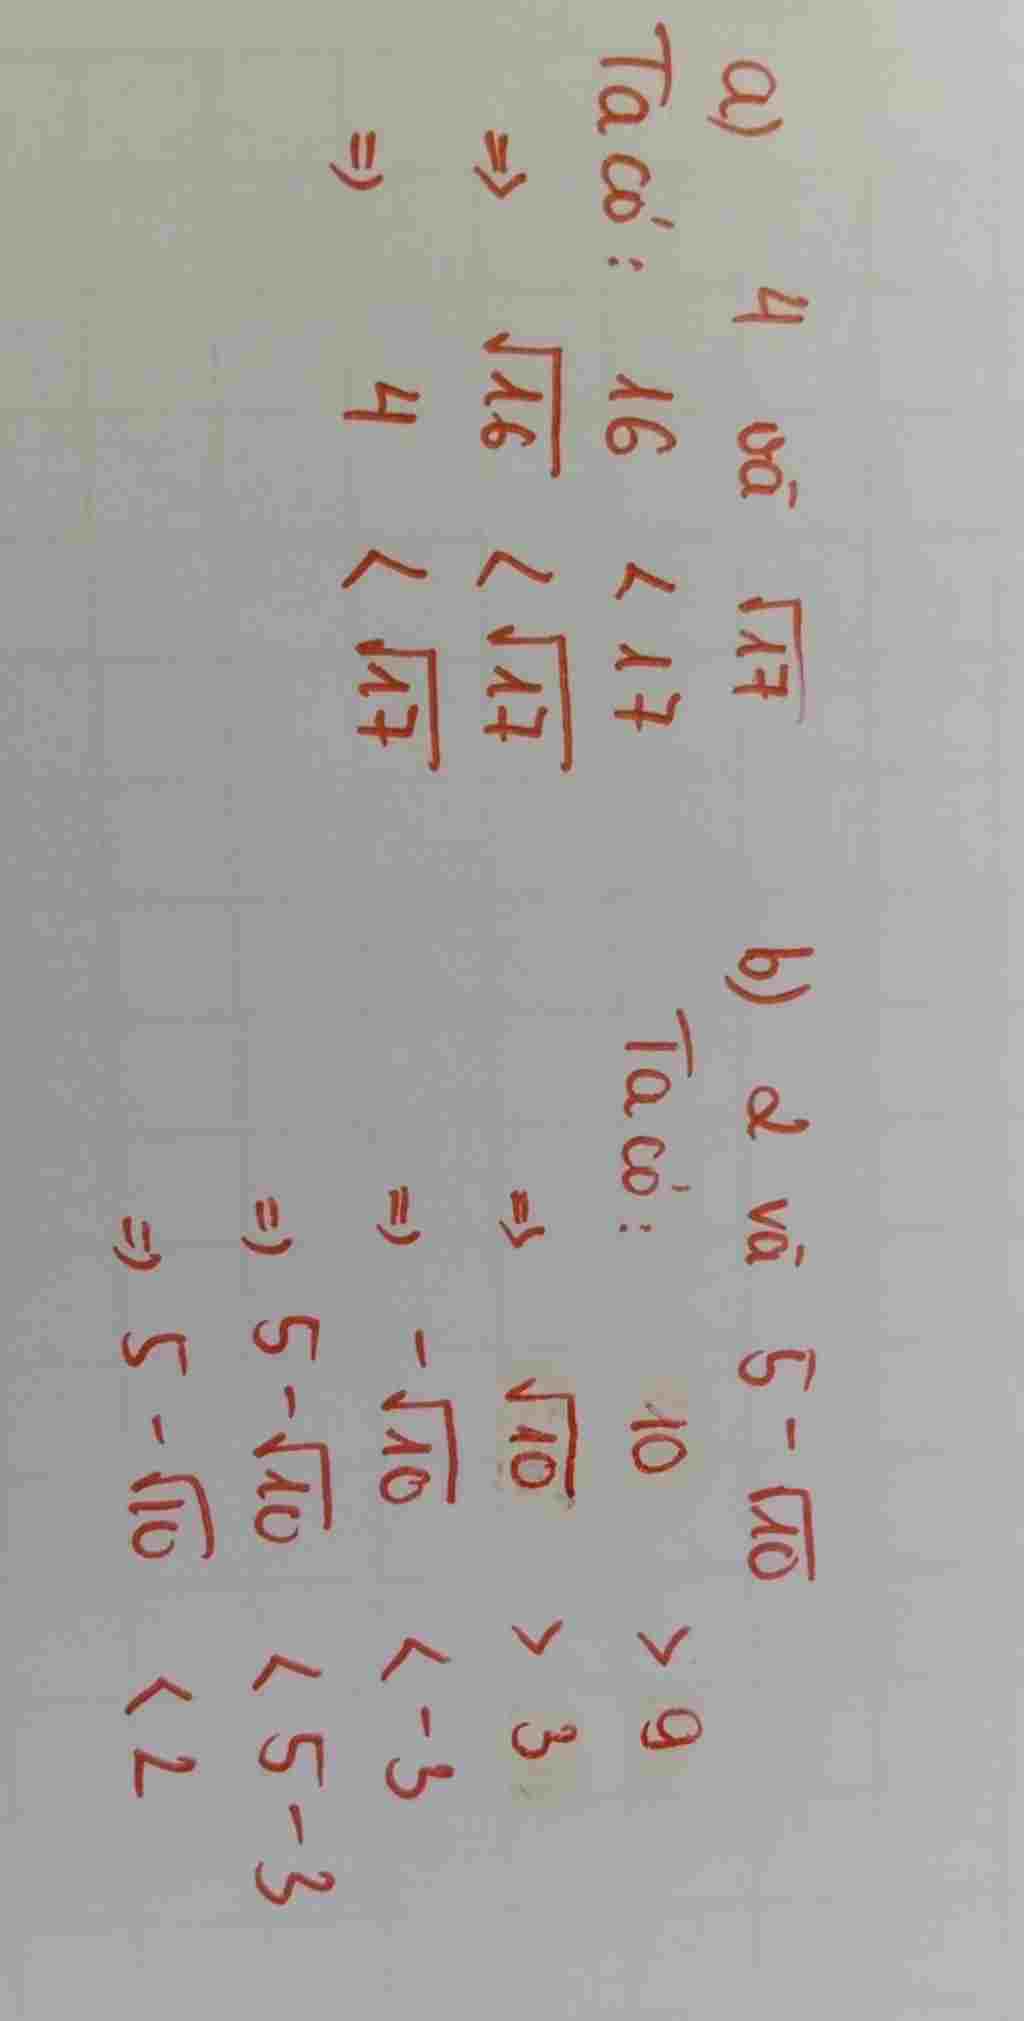 a) 4 và √17
Ta có: 16 < 17
=> √16 < √17
=> 4 < √17
b) 2 và 5 - √10
Ta có: 10 > 9
=> √10 > 3
=> -√10 < -3
=> 5 - √10 < 5 - 3
=> 5 - √10 < 2